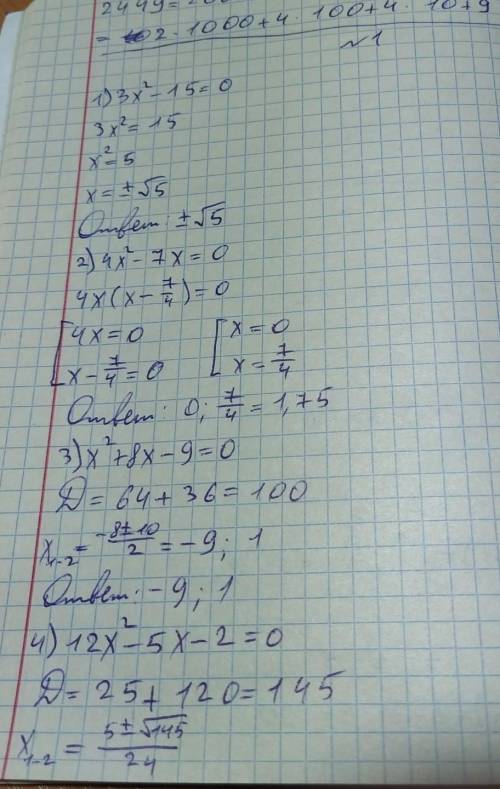 2449=
= 2·1000+4·100+4·10+9
№1
1) 3x²-15=0
3x²=15
x²=5
x=±√5
Ответ: ±√5
2) 4x²-7x=0
4x(x-7/4)=0
[4x=0 [x=0
x-7/4=0 x=7/4
Ответ: 0; 7/4=1,75
3) x²+8x-9=0
D=64+36=100
x₁₋₂=-8±10/2=-9; 1
Ответ: -9; 1
4) 12x²-5x-2=0
D=25+120=145
x₁₋₂=5±√145/24